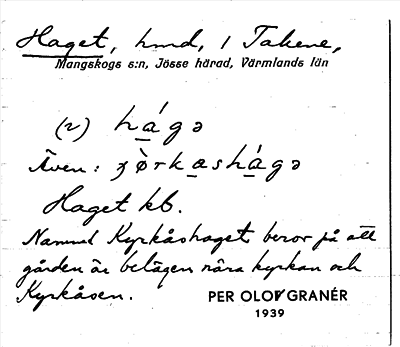 Haget, hmd, i Takene,
Mangskogs s:n, Jösse härad, Värmlands län
(2) hágə
Även: ȝö̀rkashágə
Haget kb.
Namnet Kyrkåshaget beror på att
gården är belägen nära kyrkan och
Kyrkåsen.
PER OLOF GRANÉR
1939